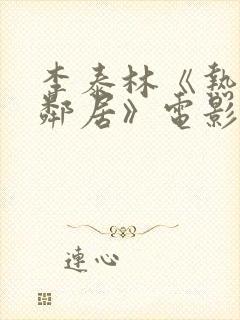 李泰林《熱
鄰居》電影
連心